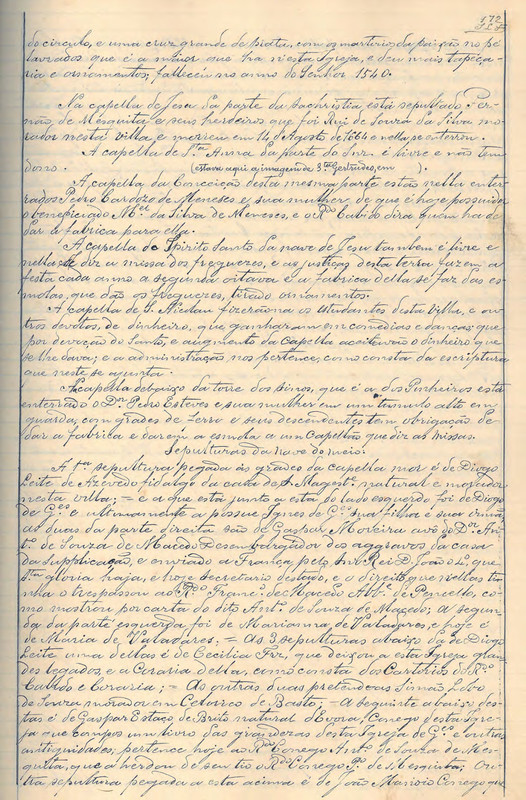 172
do circulo, e uma cruz grande de prata, com os martirios da paixão no pé
lavrados que é a melhor que ha n'esta Igreja, e deu mais tapeça-
ria e ornamentos, falleceu no anno do Senhor 1540.
Na capella de Jesu da parte da sachristia está sepultado Fer-
não de Mesquita e seus herdeiros que foi Rui de Souza da Silva mo-
rador n'esta villa e morreu em 14 de Agosto de 1664 e n'ella se enterrou.
A capella de Sta Anna da parte do Snr. é livre e não tem
dono. (estava aqui a imagem de S.ta Gertrudes, em ).
A capella da Conceição d'esta mesma parte estão n'ella enter-
rados Pedro Cardozo de Meneses e sua mulher, de que é hoje possuidor
o beneficiado M.el da Silva de Meneses, e o R.do Cabido dirá quem ha de
dar a fabrica para ella.
A capella do Spirito Santo da nave de Jesu tambem é livre e
n'ella se diz a missa dos freguezes, e as justiças d'esta terra fazem a
festa cada anno a segunda oitava e a fabrica d'ella se faz das es-
molas, que dão os freguezes, tirado ornamentos.
A capella de S. Nicolau fizeram-na os Estudantes d'esta Villa, e ou-
tros devotos, de dinheiro, que ganharam em comedias e danças que
por devoção do Santo, e augmento da Capella aceitavão o dinheiro que
se lhe dava; e a administração nos pertence, como consta da escriptura
que n'este se ajunta.
A capella debaixo da torre dos sinos, que é a dos Pinheiros está
enterrado o D.or Pedro Esteves e sua mulher em um tumulo alto em
guarda, com grades de ferro e seus descendentes tem obrigação de
dar a fabrica e darem a esmola a um Capellão que diz as missas.
Sepulturas da nave do meio:
A 1.ra sepultura pegada ás grades da capella mór é de Diogo
Leite de Azevedo fidalgo da casa de S. Magest.e natural e morador
n'esta villa; = e a que está junto a esta do lado esquerdo foi de Diogo
de G.es e ultimamente a possue Ignes de G.es sua filha e suas irmãs
as duas da parte direita são de Gaspar Moreira avô do D.or An-
t.o de Souza de Macedo Desembargador dos aggravos da casa
da Supplicação, e enviado a França pelo Snr. Rei D. João 4.º, que
s.ta gloria haja, e hoje secretario d'estado, e o direito que n'ellas ti-
nha o trespassou ao R.do Franc.o de Macedo Abb.e de , co-
mo mostrou por carta do dito Ant.o de Souza de Macedo; a segun-
da da parte esquerda foi de Marianna de Valadares, e hoje é
de Maria de Valadares. = As 3 sepulturas abaixo da de Diogo
Leite uma d'ellas é de Cecilia Frz, que deixou a esta Igreja gran-
des legados, e a Coraria d'ella, como consta dos Cartorios do R.do
Cabido e Coraria; = As outras duas pretende as Simão Lobo
de Souza morador em de Basto; = A seguinte abaixo d'es-
tas é de Gaspar Estaço de Brito natural d'Evora, Conego d'esta Igre-
ja que compos um livro das grandezas d'esta Igreja de G.es e outras
antiguidades; pertence hoje ao R.do Conego Ant.o de Souza de Mes-
quita, que a herdou de seu tio o R.do Conego P.o de Mesquita; Ou-
tra sepultura pegada a esta acima é de João Conego que